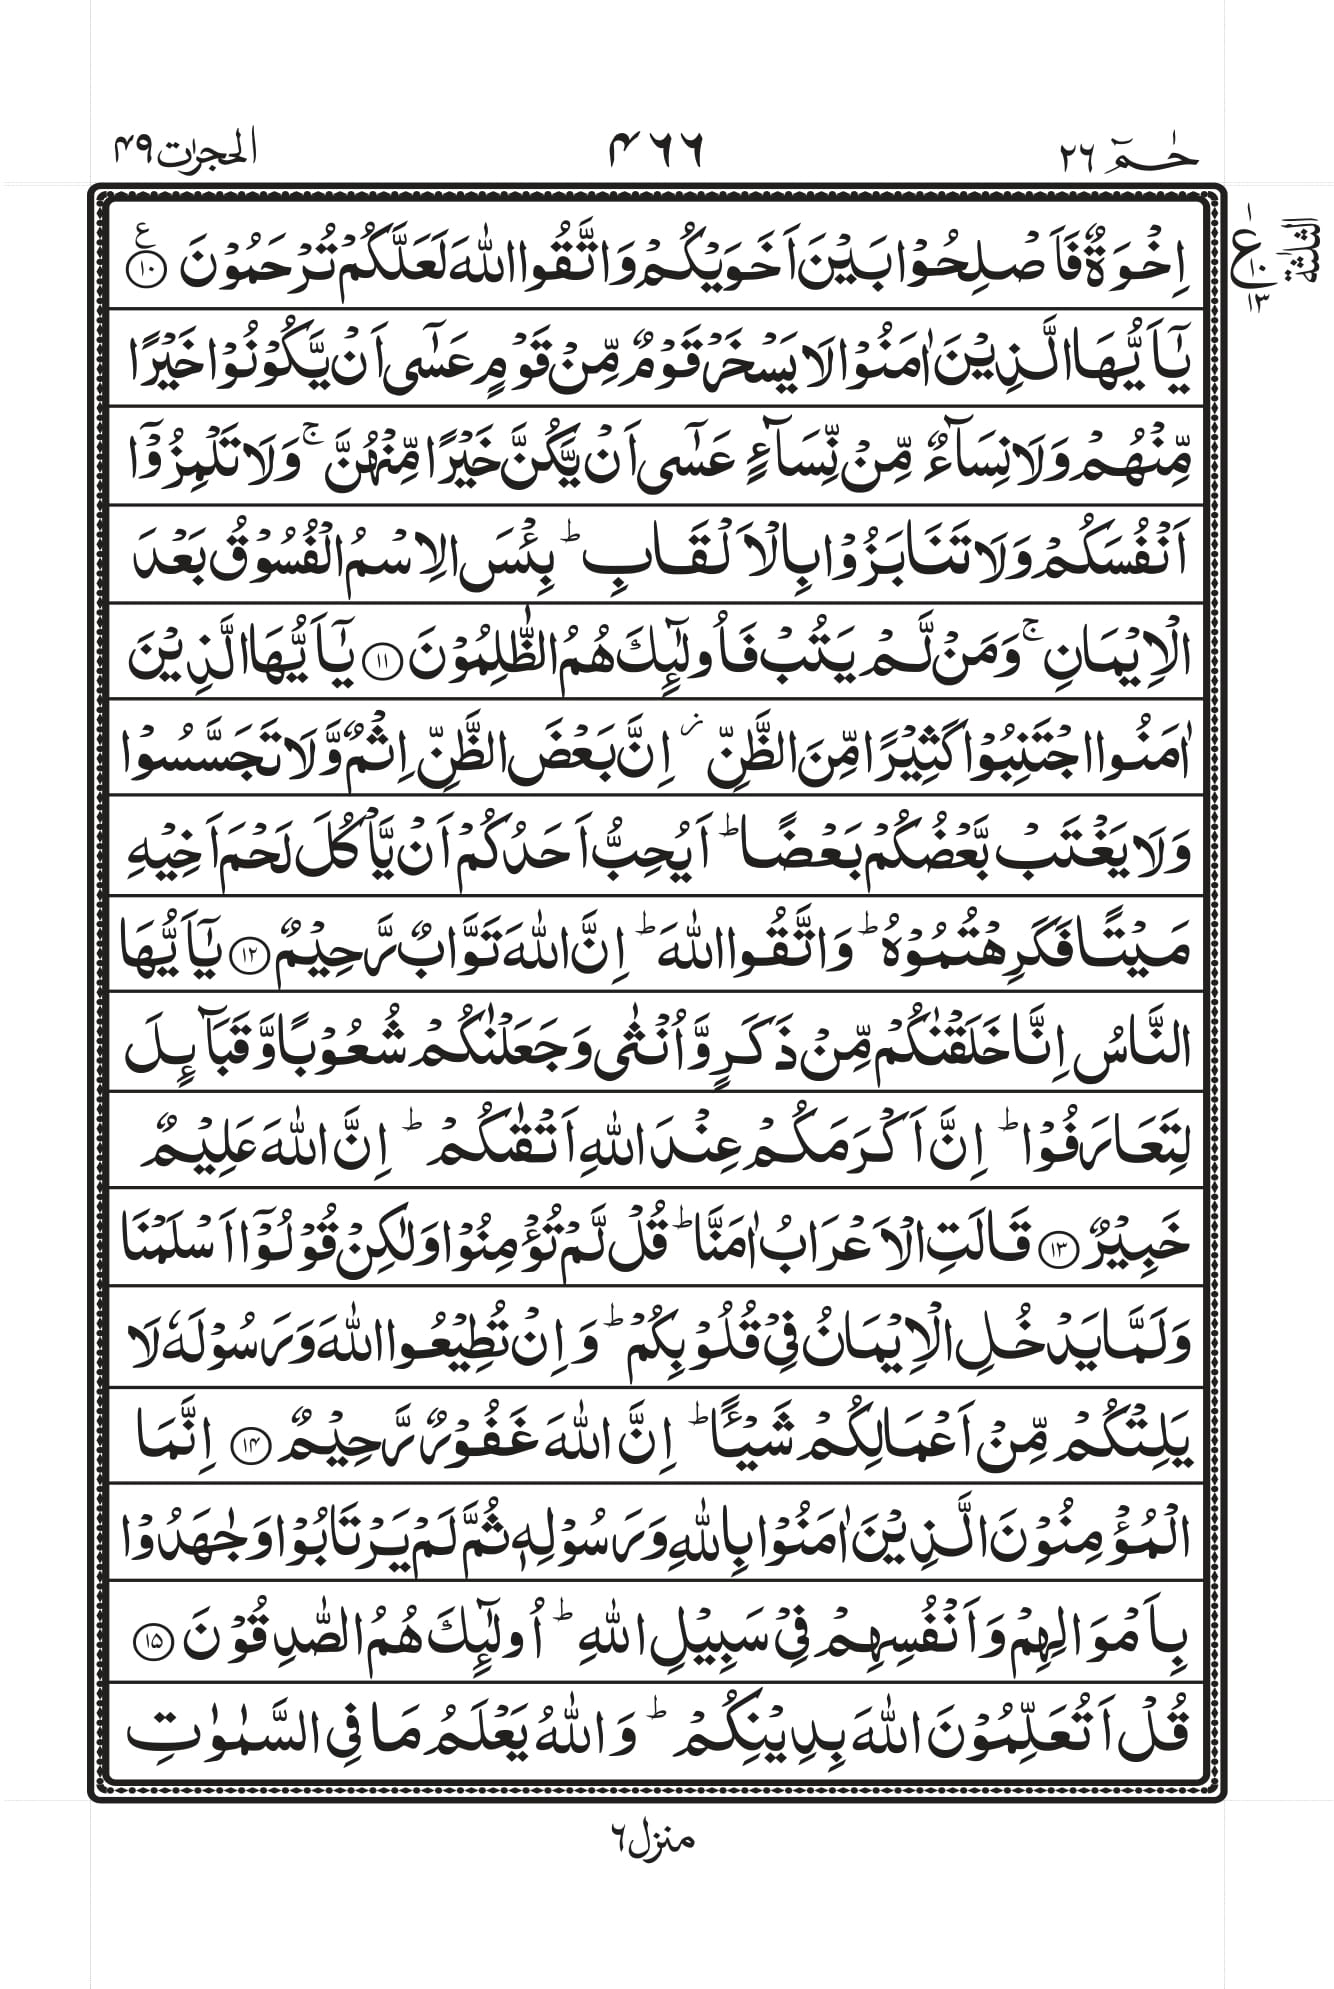 حٰمٓ ٢٦
۴٦٦
الحجرٰت ۴۹
اِخْوَةٌ فَاَصْلِحُوْا بَيْنَ اَخَوَيْكُمْ وَاتَّقُوا اللّٰهَ لَعَلَّكُمْ تُرْحَمُوْنَ ۧ ⑩
يٰۤاَيُّهَا الَّذِيْنَ اٰمَنُوْا لَا يَسْخَرْ قَوْمٌ مِّنْ قَوْمٍ عَسٰۤى اَنْ يَّكُوْنُوْا خَيْرًا
مِّنْهُمْ وَلَا نِسَآءٌ مِّنْ نِّسَآءٍ عَسٰۤى اَنْ يَّكُنَّ خَيْرًا مِّنْهُنَّ ۚ وَلَا تَلْمِزُوْۤا
اَنْفُسَكُمْ وَلَا تَنَابَزُوْا بِالْاَلْقَابِ ؕ بِئْسَ الِاسْمُ الْفُسُوْقُ بَعْدَ
الْاِيْمَانِ ۚ وَمَنْ لَّمْ يَتُبْ فَاُولٰٓئِكَ هُمُ الظّٰلِمُوْنَ ⑪ يٰۤاَيُّهَا الَّذِيْنَ
اٰمَنُوا اجْتَنِبُوْا كَثِيْرًا مِّنَ الظَّنِّ ؗ اِنَّ بَعْضَ الظَّنِّ اِثْمٌ وَّلَا تَجَسَّسُوْا
وَلَا يَغْتَبْ بَّعْضُكُمْ بَعْضًا ؕ اَيُحِبُّ اَحَدُكُمْ اَنْ يَّاْكُلَ لَحْمَ اَخِيْهِ
مَيْتًا فَكَرِهْتُمُوْهُ ؕ وَاتَّقُوا اللّٰهَ ؕ اِنَّ اللّٰهَ تَوَّابٌ رَّحِيْمٌ ⑫ يٰۤاَيُّهَا
النَّاسُ اِنَّا خَلَقْنٰكُمْ مِّنْ ذَكَرٍ وَّاُنْثٰى وَجَعَلْنٰكُمْ شُعُوْبًا وَّقَبَآئِلَ
لِتَعَارَفُوْا ؕ اِنَّ اَكْرَمَكُمْ عِنْدَ اللّٰهِ اَتْقٰىكُمْ ؕ اِنَّ اللّٰهَ عَلِيْمٌ
خَبِيْرٌ ⑬ قَالَتِ الْاَعْرَابُ اٰمَنَّا ؕ قُلْ لَّمْ تُؤْمِنُوْا وَلٰكِنْ قُوْلُوْۤا اَسْلَمْنَا
وَلَمَّا يَدْخُلِ الْاِيْمَانُ فِيْ قُلُوْبِكُمْ ؕ وَاِنْ تُطِيْعُوا اللّٰهَ وَرَسُوْلَهٗ لَا
يَلِتْكُمْ مِّنْ اَعْمَالِكُمْ شَيْـًٔا ؕ اِنَّ اللّٰهَ غَفُوْرٌ رَّحِيْمٌ ⑭ اِنَّمَا
الْمُؤْمِنُوْنَ الَّذِيْنَ اٰمَنُوْا بِاللّٰهِ وَرَسُوْلِهٖ ثُمَّ لَمْ يَرْتَابُوْا وَجٰهَدُوْا
بِاَمْوَالِهِمْ وَاَنْفُسِهِمْ فِيْ سَبِيْلِ اللّٰهِ ؕ اُولٰٓئِكَ هُمُ الصّٰدِقُوْنَ ⑮
قُلْ اَتُعَلِّمُوْنَ اللّٰهَ بِدِيْنِكُمْ ؕ وَاللّٰهُ يَعْلَمُ مَا فِي السَّمٰوٰتِ
١
ع
١٠
١٣
الثلثة
منزل ٦